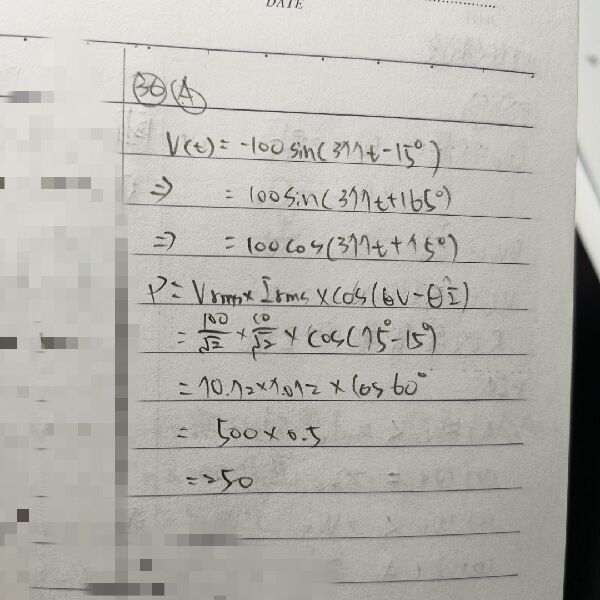 DATE
36 A
V(t) = -100 sin(377t-15°)
⇒ = 100 sin(377t+165°)
⇒ = 100 cos(377t+75°)
P = Vrms × Irms × cos(θV-θI)
= 100/√2 × 10/√2 × cos(75°-15°)
= 70.72×7.072 × cos 60°
= 500 × 0.5
= 250